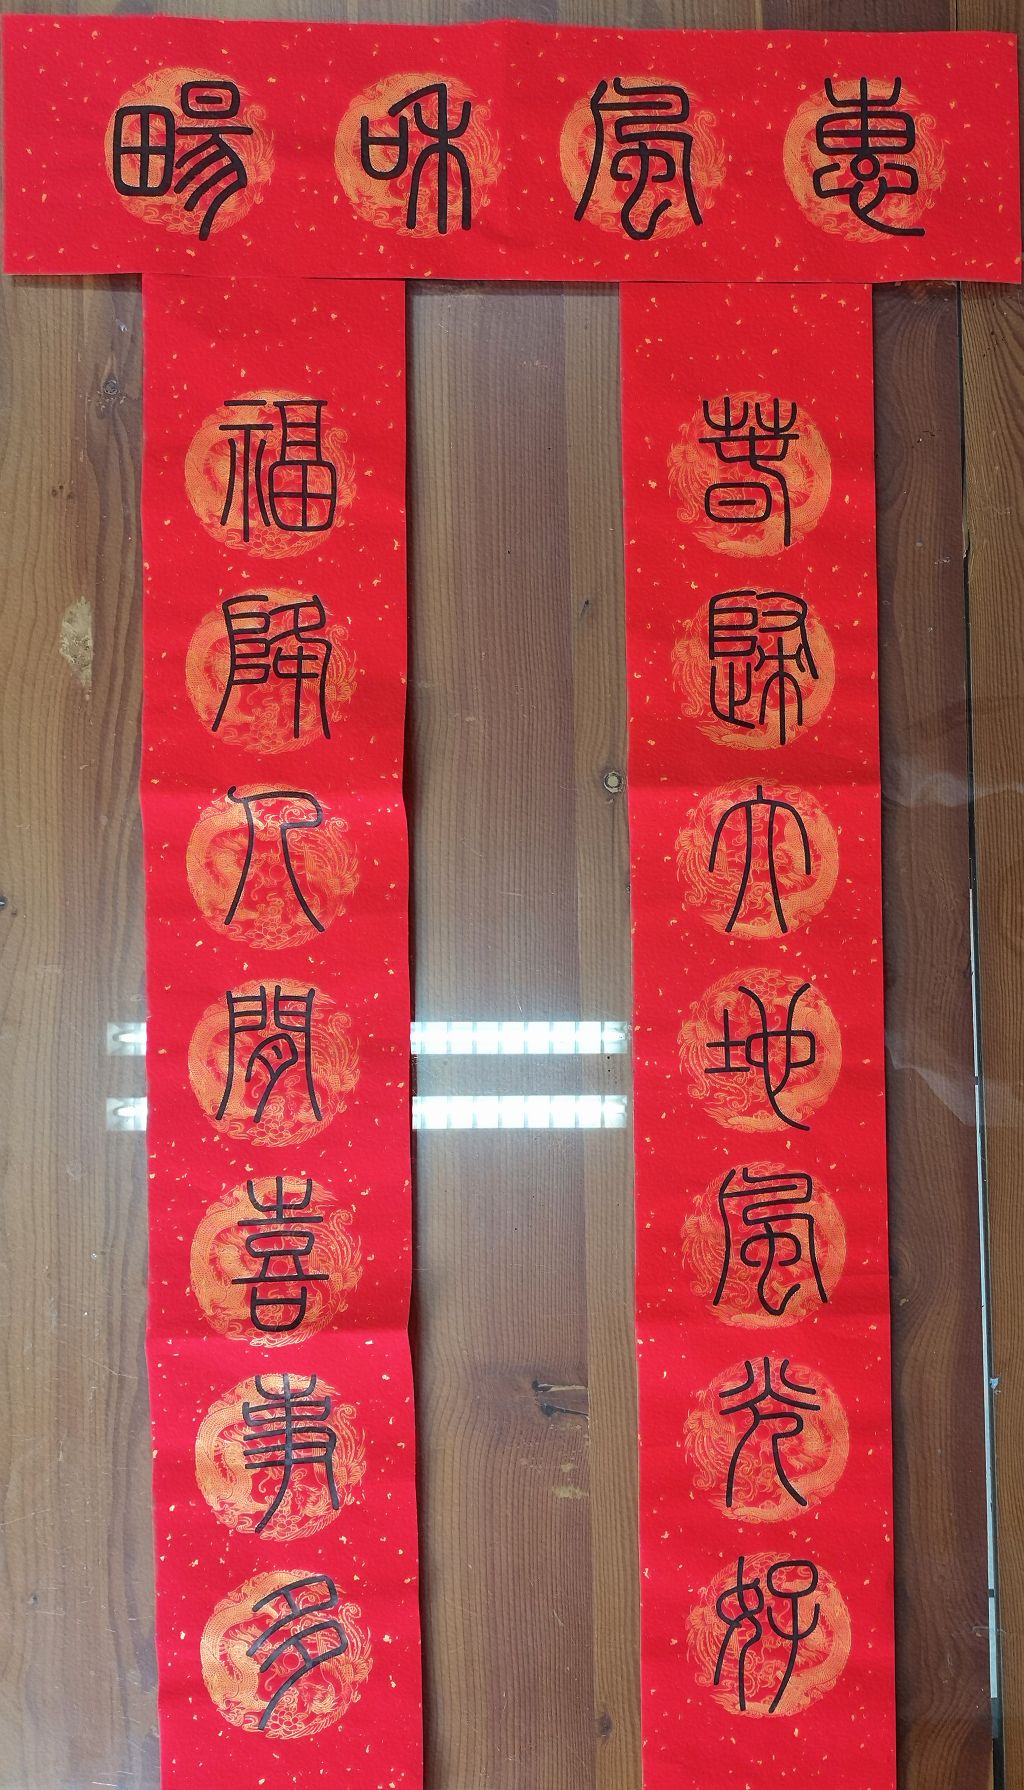 惠風和暢
春歸大地風光好
福降人間喜事多